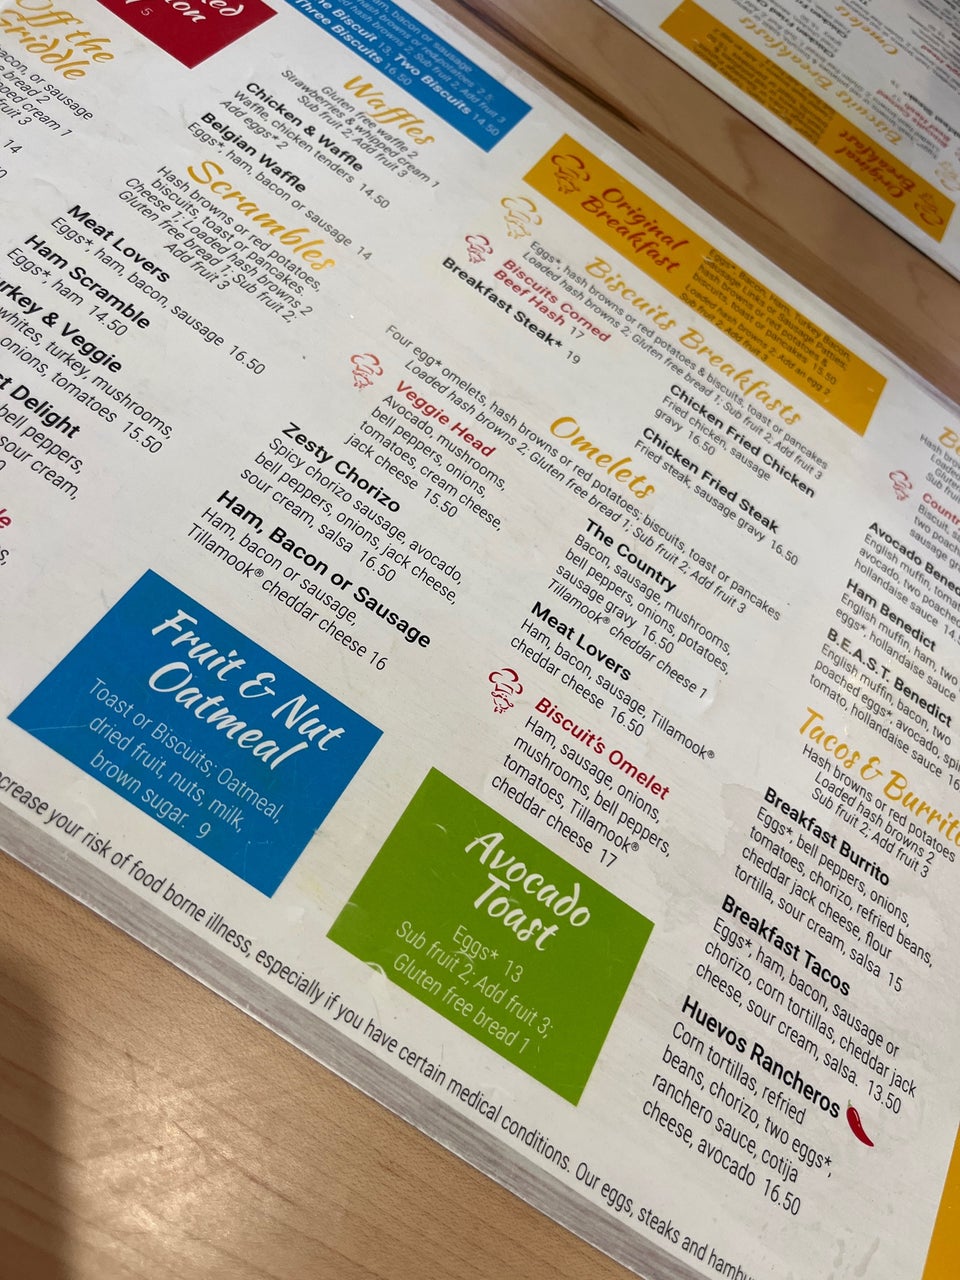 Off the
Griddle
bacon, or sausage
bread 2
whipped cream 1
fruit 3
14
5
bacon or sausage
Biscuit 13, Two Biscuits 14.50
Three Biscuits 16.50
Waffles
Gluten free waffle 2
Strawberries & whipped cream 1
Sub fruit 2; Add fruit 3
Chicken & Waffle
Waffle, chicken tenders 14.50
Add eggs* 2
Belgian Waffle
Eggs*, ham, bacon or sausage 14
Scrambles
Hash browns or red potatoes,
biscuits, toast or pancakes.
Cheese 1; Loaded hash browns 2
Gluten free bread 1; Sub fruit 2;
Add fruit 3
Meat Lovers
Eggs*, ham, bacon, sausage 16.50
Ham Scramble
Eggs*, ham 14.50
Turkey & Veggie
whites, turkey, mushrooms,
onions, tomatoes 15.50
Delight
bell peppers,
sour cream,
Original
Breakfast
Eggs*, Bacon, Ham, Turkey Bacon,
Sausage Links or Sausage Patties,
hash browns or red potatoes,
biscuits, toast or pancakes 15.50
Loaded hash browns 2; Add an egg 2;
Sub fruit 2; Add fruit 3
Biscuits Breakfasts
Eggs*, hash browns or red potatoes & biscuits, toast or pancakes
Loaded hash browns 2; Gluten free bread 1; Sub fruit 2; Add fruit 3
Biscuits Corned
Beef Hash 17
Breakfast Steak* 19
Chicken Fried Chicken
Fried chicken, sausage
gravy 16.50
Chicken Fried Steak
Fried steak, sausage gravy 16.50
Omelets
Four egg* omelets, hash browns or red potatoes; biscuits, toast or pancakes
Loaded hash browns 2; Gluten free bread 1; Sub fruit 2; Add fruit 3
Veggie Head
Avocado, mushrooms,
bell peppers, onions,
tomatoes, cream cheese,
jack cheese 15.50
Zesty Chorizo
Spicy chorizo sausage, avocado,
bell peppers, onions, jack cheese,
sour cream, salsa 16.50
Ham, Bacon or Sausage
Ham, bacon or sausage,
Tillamook® cheddar cheese 16
The Country
Bacon, sausage, mushrooms,
bell peppers, onions, potatoes,
sausage gravy 16.50
Tillamook® cheddar cheese 1
Meat Lovers
Ham, bacon, sausage, Tillamook®
cheddar cheese 16.50
Biscuit's Omelet
Ham, sausage, onions,
mushrooms, bell peppers,
tomatoes, Tillamook®
cheddar cheese 17
Fruit & Nut
Oatmeal
Toast or Biscuits; Oatmeal,
dried fruit, nuts, milk,
brown sugar. 9
Avocado
Toast
Eggs* 13
Sub fruit 2; Add fruit 3;
Gluten free bread 1
Avocado
English muffin,
avocado, two poached
hollandaise sauce
Ham Benedict
English muffin, ham, two
eggs*, hollandaise sauce
B.E.A.S.T. Benedict
English muffin, bacon, two
poached eggs*, avocado,
tomato, hollandaise sauce
Tacos & Burritos
Hash browns or red potatoes
Loaded hash browns 2
Sub fruit 2; Add fruit 3
Breakfast Burrito
Eggs*, bell peppers, onions,
tomatoes, chorizo, refried beans,
cheddar jack cheese, flour
tortilla, sour cream, salsa 15
Breakfast Tacos
Eggs*, ham, bacon, sausage or
chorizo, corn tortillas, cheddar jack
cheese, sour cream, salsa. 13.50
Huevos Rancheros
Corn tortillas, refried
beans, chorizo, two eggs*,
ranchero sauce, cotija
cheese, avocado 16.50
increase your risk of food borne illness, especially if you have certain medical conditions. Our eggs, steaks and